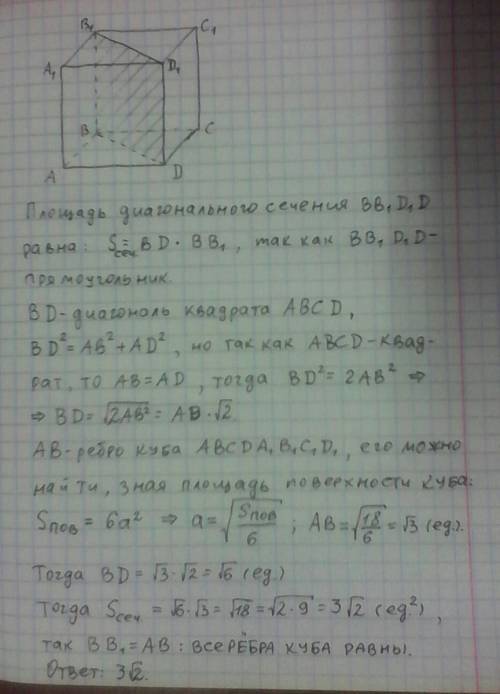 B₁
C₁
A₁
D₁
B
C
A
D
Площадь диагонального сечения BB₁D₁D
равна: Sсеч = BD · BB₁, так как BB₁D₁D-
прямоугольник.
BD-диагональ квадрата ABCD,
BD² = AB² + AD², но так как ABCD-квад-
рат, то AB=AD, тогда BD² = 2AB² ⇒
⇒ BD = √(2AB²) = AB · √2
AB-ребро куба ABCDA₁B₁C₁D₁, его можно
найти, зная площадь поверхности куба:
Sпов = 6a² ⇒ a = √(Sпов/6) ; AB = √(18/6) = √3 (ед.).
Тогда BD = √3 · √2 = √6 (ед.)
Тогда Sсеч = √6 · √3 = √18 = √(2·9) = 3√2 (ед²),
так BB₁ = AB : ВСЕ РЁБРА КУБА РАВНЫ.
Ответ: 3√2.